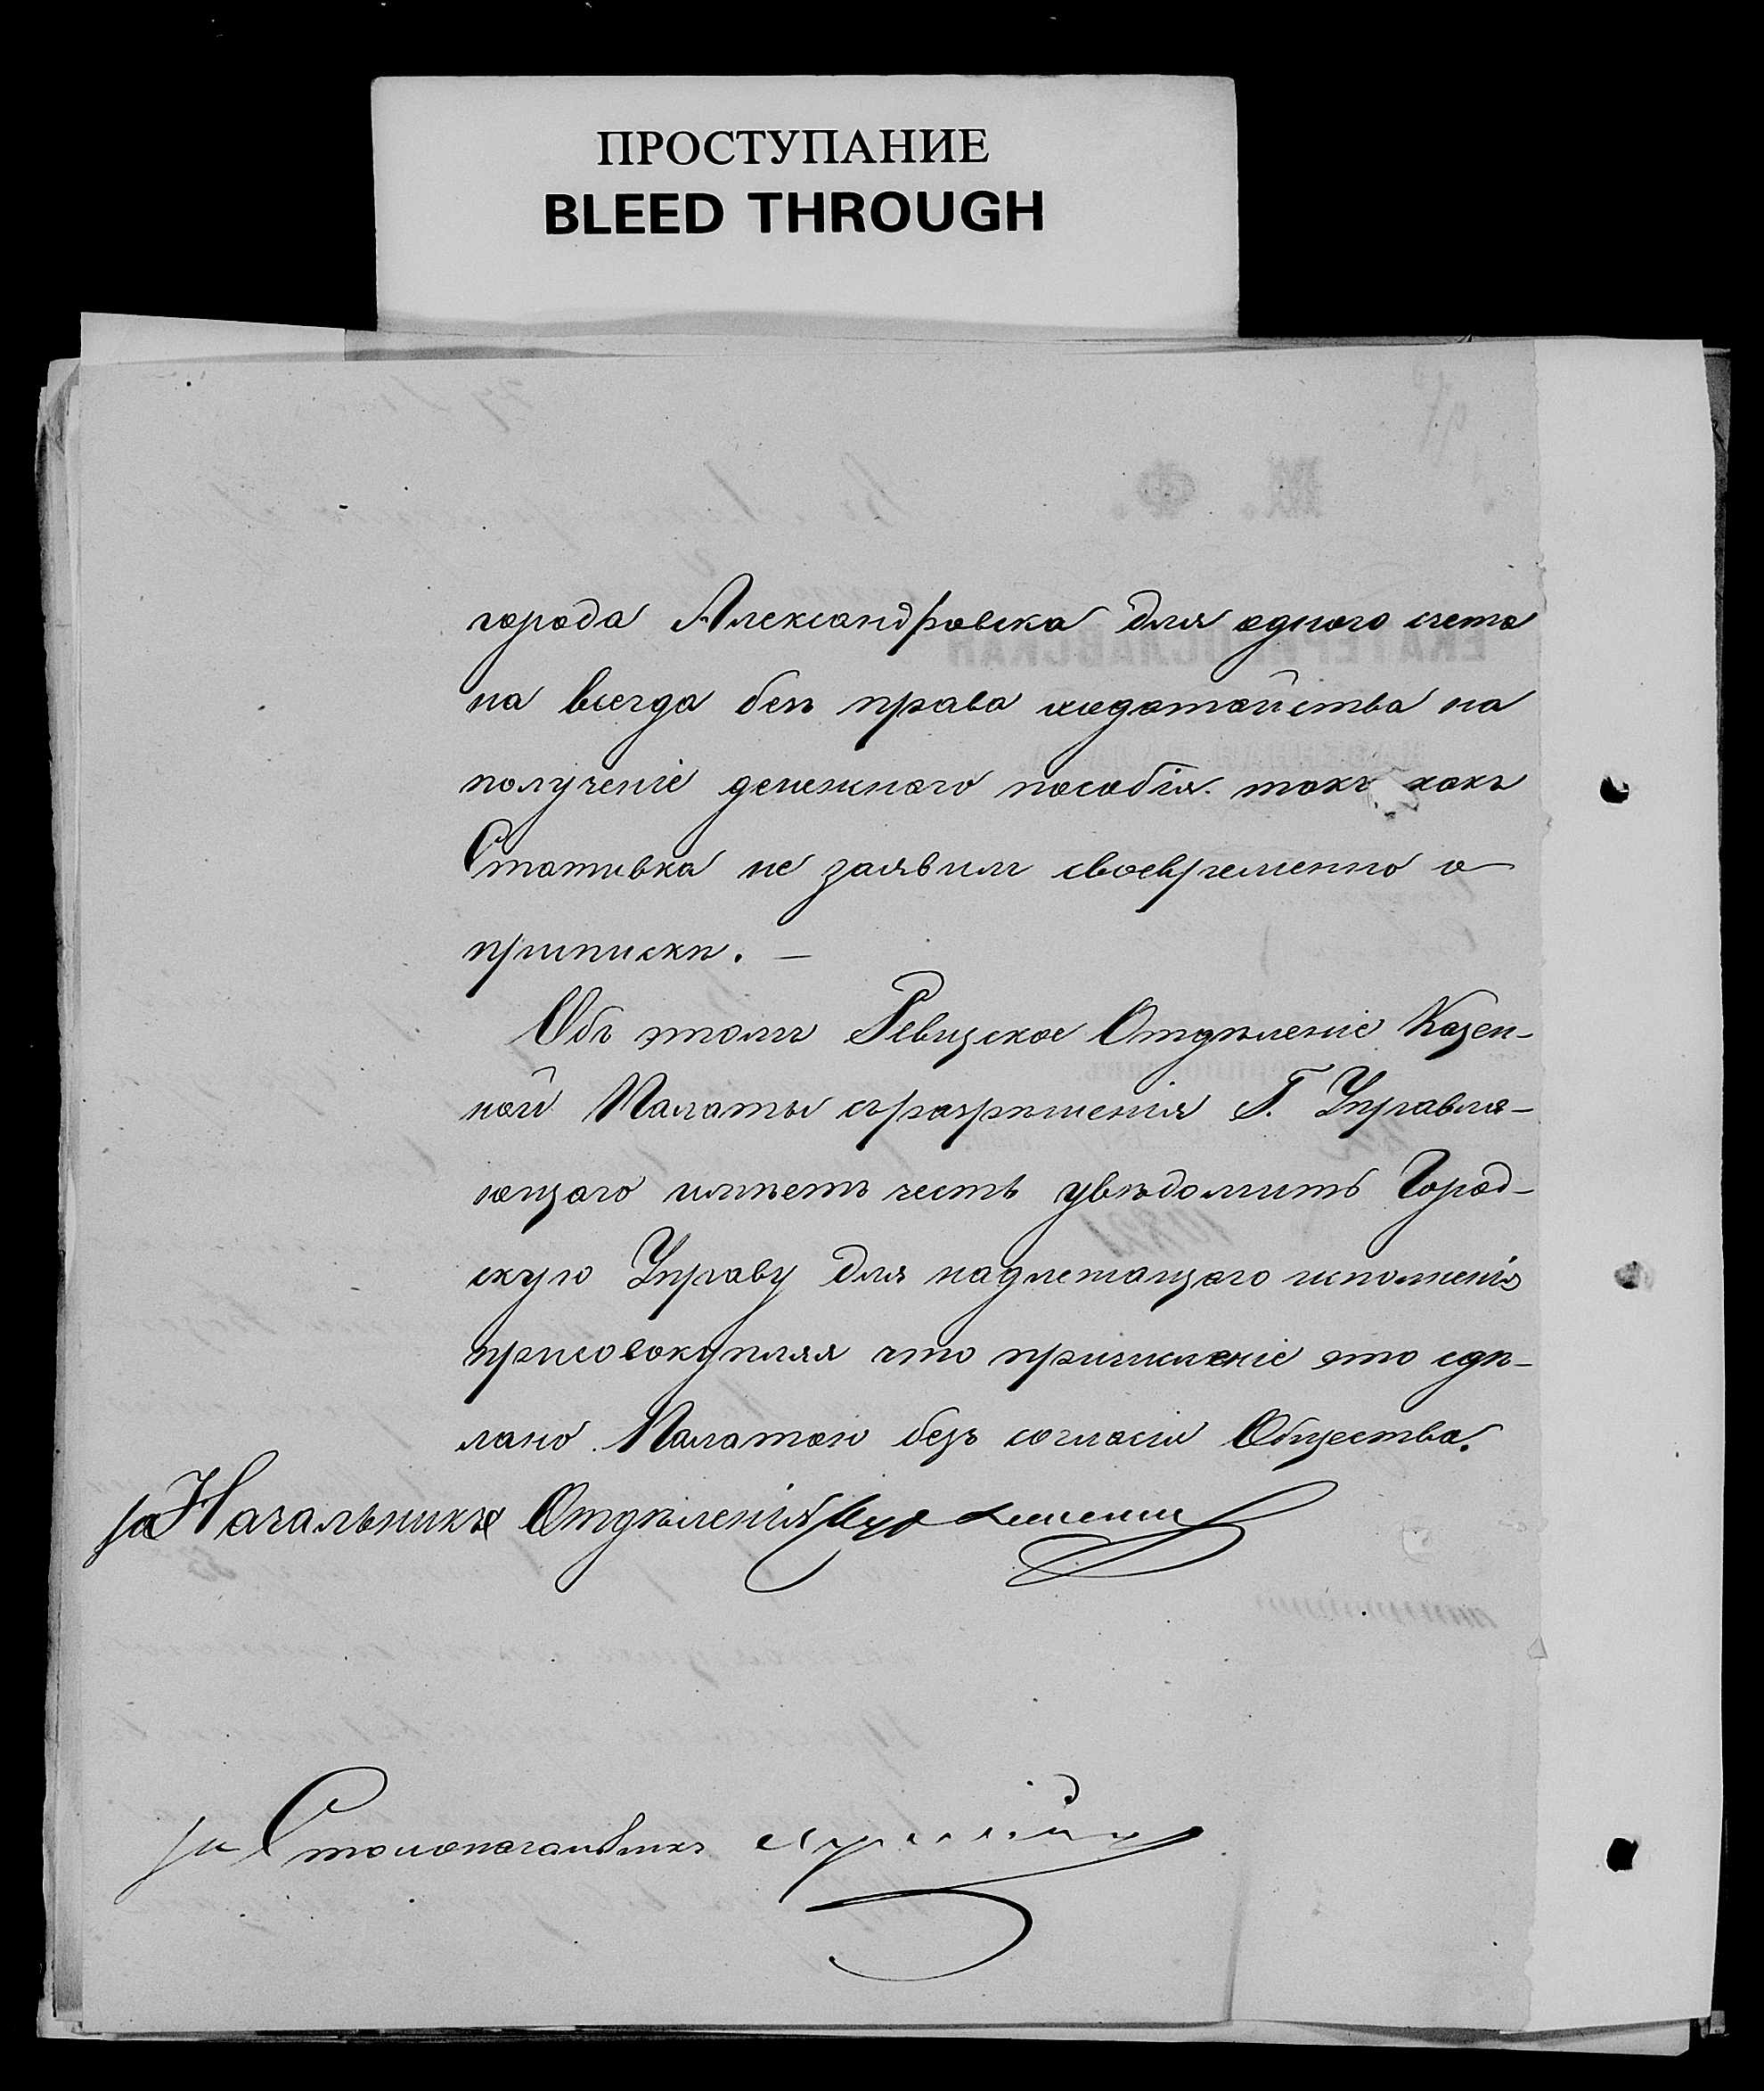 ПРОСТУПАНИЕ
BLEED THROUGH
города Александровска для одного счета
на всегда безъ права ходатайства на
полученіе денежнаго пособія. такъ какъ
Стативка не заявилъ своевременно о
припискѣ. —
Объ этомъ Ревизское Отдѣленіе Казен-
ной Палаты съ разрѣшенія Г. Управля-
ющаго имѣетъ честь увѣдомить Город-
скую Управу для надлежащаго исполненія
присовокупляя что причисленіе это сдѣ-
лано Палатою безъ согласія Общества.
за Начальника Отдѣленія
за Столоначальникъ